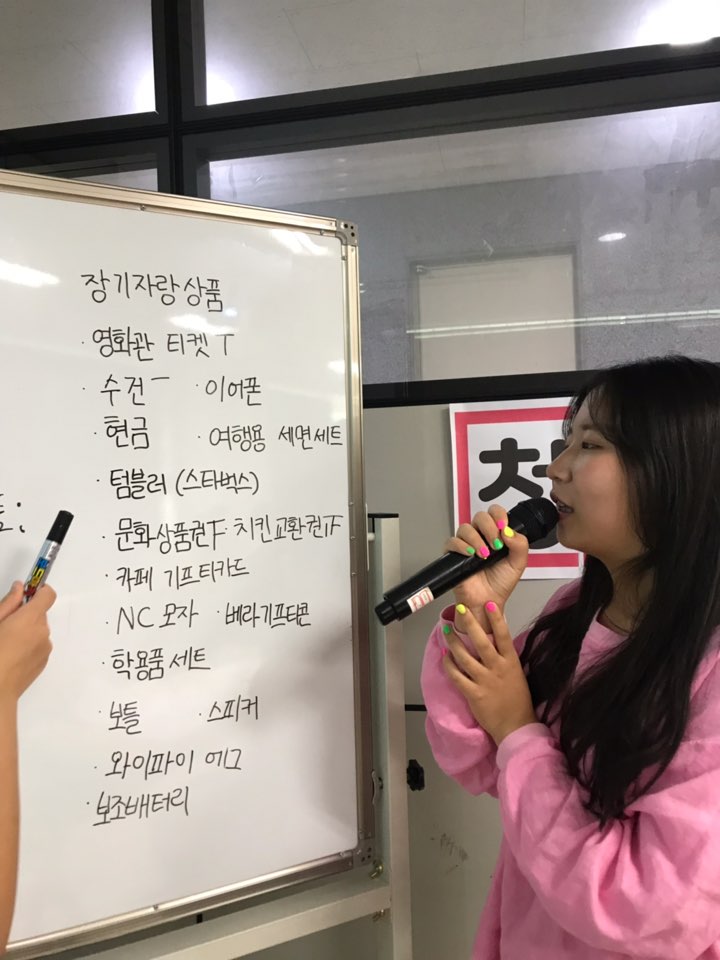 장기자랑 상품
· 영화관 티켓 T
· 수건 – · 이어폰
· 현금 · 여행용 세면세트
· 텀블러 (스타벅스)
· 문화상품권 · 치킨교환권
· 카페 기프티카드
· NC 모자 · 베라기프티콘
· 학용품 세트
· 보틀 · 스피커
· 와이파이 에그
· 보조배터리